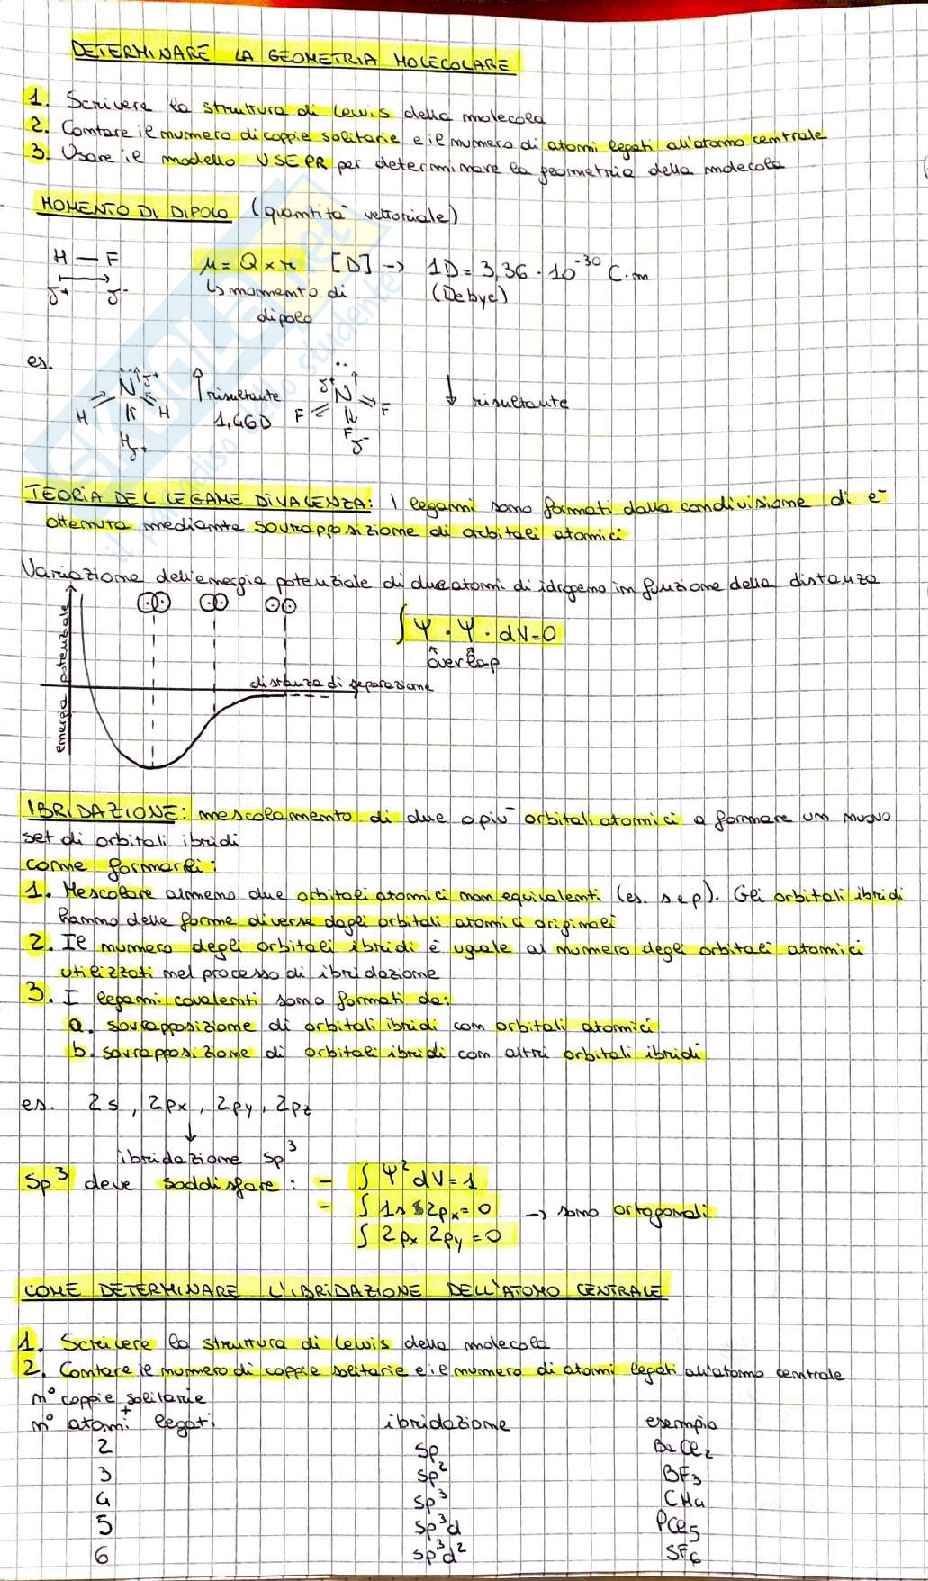 DETERMINARE LA GEOMETRIA MOLECOLARE
1. Scrivere la struttura di Lewis della molecola
2. Contare il numero di coppie solitarie e il numero di atomi legati all'atomo centrale
3. Usare il modello VSEPR per determinare la geometria della molecola
MOMENTO DI DIPOLO (quantità vettoriale)
H — F
δ+ δ-
μ = Q × r [D] → 1D = 3,36 · 10⁻³⁰ C·m
↳ momento di dipolo
(Debye)
es.
N δ+
H H
H δ+
↑ risultante
1,46D
δ+ N
F F
F
δ-
↓ risultante
TEORIA DEL LEGAME DI VALENZA: I legami sono formati dalla condivisione di e-
ottenuta mediante sovrapposizione di orbitali atomici
Variazione dell'energia potenziale di due atomi di idrogeno in funzione della distanza
energia potenziale
∫ Ψ · Ψ · dV = 0
overlap
distanza di separazione
IBRIDAZIONE: mescolamento di due o più orbitali atomici a formare un nuovo
set di orbitali ibridi
come formarli:
1. Mescolare almeno due orbitali atomici non equivalenti (es. s e p). Gli orbitali ibridi
hanno delle forme diverse dagli orbitali atomici originali
2. Il numero degli orbitali ibridi è uguale al numero degli orbitali atomici
utilizzati nel processo di ibridazione
3. I legami covalenti sono formati da:
a. sovrapposizione di orbitali ibridi con orbitali atomici
b. sovrapposizione di orbitali ibridi con altri orbitali ibridi
es. 2s, 2px, 2py, 2pz
↓
ibridazione sp³
Sp³ deve soddisfare: - ∫ Ψ² dV = 1
- ∫ 1s 2px = 0 → sono ortogonali
∫ 2px 2py = 0
COME DETERMINARE L'IBRIDAZIONE DELL'ATOMO CENTRALE
1. Scrivere la struttura di Lewis della molecola
2. Contare il numero di coppie solitarie e il numero di atomi legati all'atomo centrale
n° coppie solitarie
+
n° atomi legati ibridazione esempio
2 sp BeCl₂
3 sp² BF₃
4 sp³ CH₄
5 sp³d PCl₅
6 sp³d² SF₆